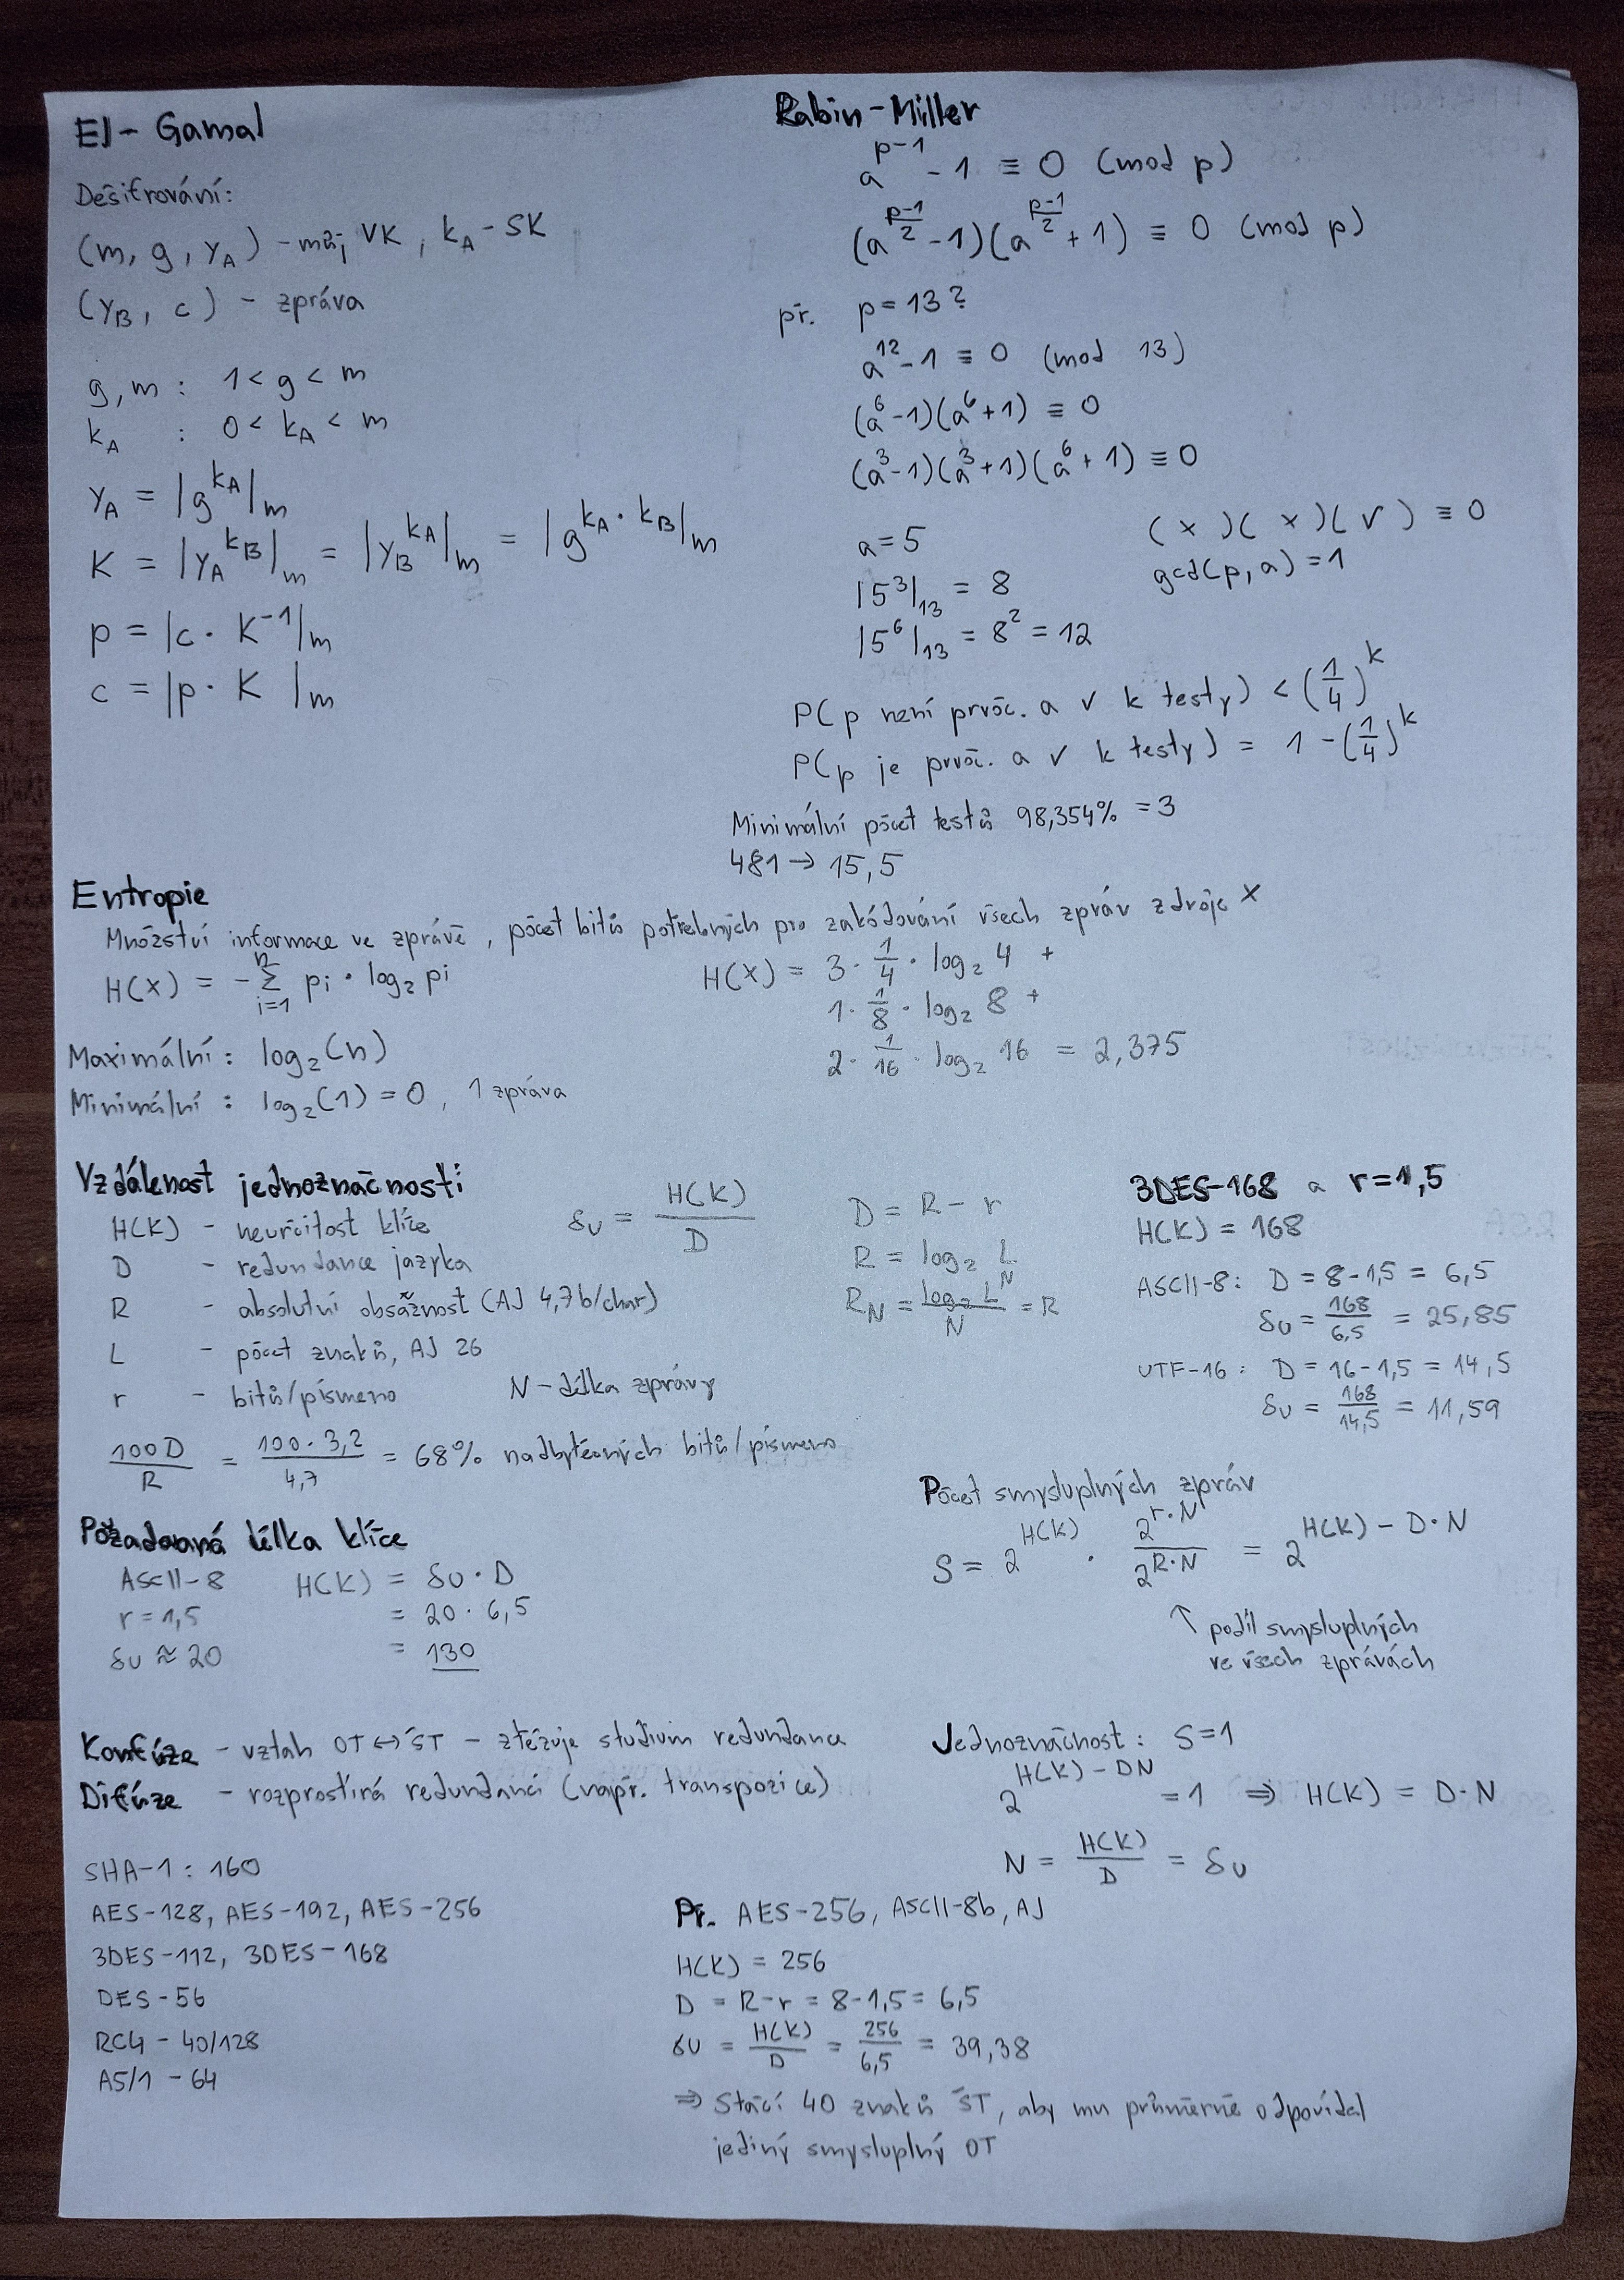 El-Gamal
Dešifrování:
(m, g, y_A) - můj VK, k_A - SK
(y_B, c) - zpráva
g, m : 1 < g < m
k_A : 0 < k_A < m
y_A = |g^{k_A}|_m
K = |y_A^{k_B}|_m = |y_B^{k_A}|_m = |g^{k_A · k_B}|_m
p = |c · K^{-1}|_m
c = |p · K|_m
Rabin-Miller
a^{p-1} - 1 ≡ 0 (mod p)
(a^{\frac{p-1}{2}} - 1)(a^{\frac{p-1}{2}} + 1) ≡ 0 (mod p)
př. p = 13?
a^{12} - 1 ≡ 0 (mod 13)
(a^6 - 1)(a^6 + 1) ≡ 0
(a^3 - 1)(a^3 + 1)(a^6 + 1) ≡ 0
a = 5
(x)(x)(✓) ≡ 0
gcd(p, a) = 1
|5^3|_{13} = 8
|5^6|_{13} = 8^2 = 12
P(p není prvoč. a ✓ k testy) < (1/4)^k
P(p je prvoč. a ✓ k testy) = 1 - (1/4)^k
Minimální počet testů 98,354% = 3
481 → 15,5
Entropie
Množství informace ve zprávě, počet bitů potřebných pro zakódování všech zpráv zdroje X
H(X) = -\sum_{i=1}^{n} pi · log_2 pi
H(X) = 3 · 1/4 · log_2 4 +
1 · 1/8 · log_2 8 +
2 · 1/16 · log_2 16 = 2,375
Maximální: log_2(n)
Minimální: log_2(1) = 0, 1 zpráva
Vzdálenost jednoznačnosti
H(K) - neurčitost klíče
D - redundance jazyka
R - absolutní obsažnost (AJ 4,7b/char)
L - počet znaků, AJ 26
r - bitů/písmeno N - délka zprávy
100D/R = 100·3,2/4,7 = 68% nadbytečných bitů/písmeno
δU = H(K)/D
D = R - r
R = log_2 L
R_N = log_2 L^N / N = R
3DES-168 a r=1,5
H(K) = 168
ASCII-8: D = 8-1,5 = 6,5
δU = 168/6,5 = 25,85
UTF-16: D = 16-1,5 = 14,5
δU = 168/14,5 = 11,59
Požadovaná délka klíče
ASCII-8 H(K) = δU · D
r = 1,5 = 20 · 6,5
δU ≈ 20 = 130
Počet smysluplných zpráv
S = 2^{H(K)} · 2^{r·N}/2^{R·N} = 2^{H(K) - D·N}
↑ podíl smysluplných
ve všech zprávách
Konfúze - vztah OT ↔ ŠT - ztěžuje studium redundance
Difúze - rozprostírá redundanci (např. transpozice)
Jednoznačnost: S=1
2^{H(K) - DN} = 1 ⇒ H(K) = D·N
N = H(K)/D = δU
SHA-1: 160
AES-128, AES-192, AES-256
3DES-112, 3DES-168
DES-56
RC4 - 40/128
A5/1 - 64
Př. AES-256, ASCII-8b, AJ
H(K) = 256
D = R-r = 8-1,5 = 6,5
δU = H(K)/D = 256/6,5 = 39,38
⇒ Stačí 40 znaků ŠT, aby mu průměrně odpovídal
jediný smysluplný OT